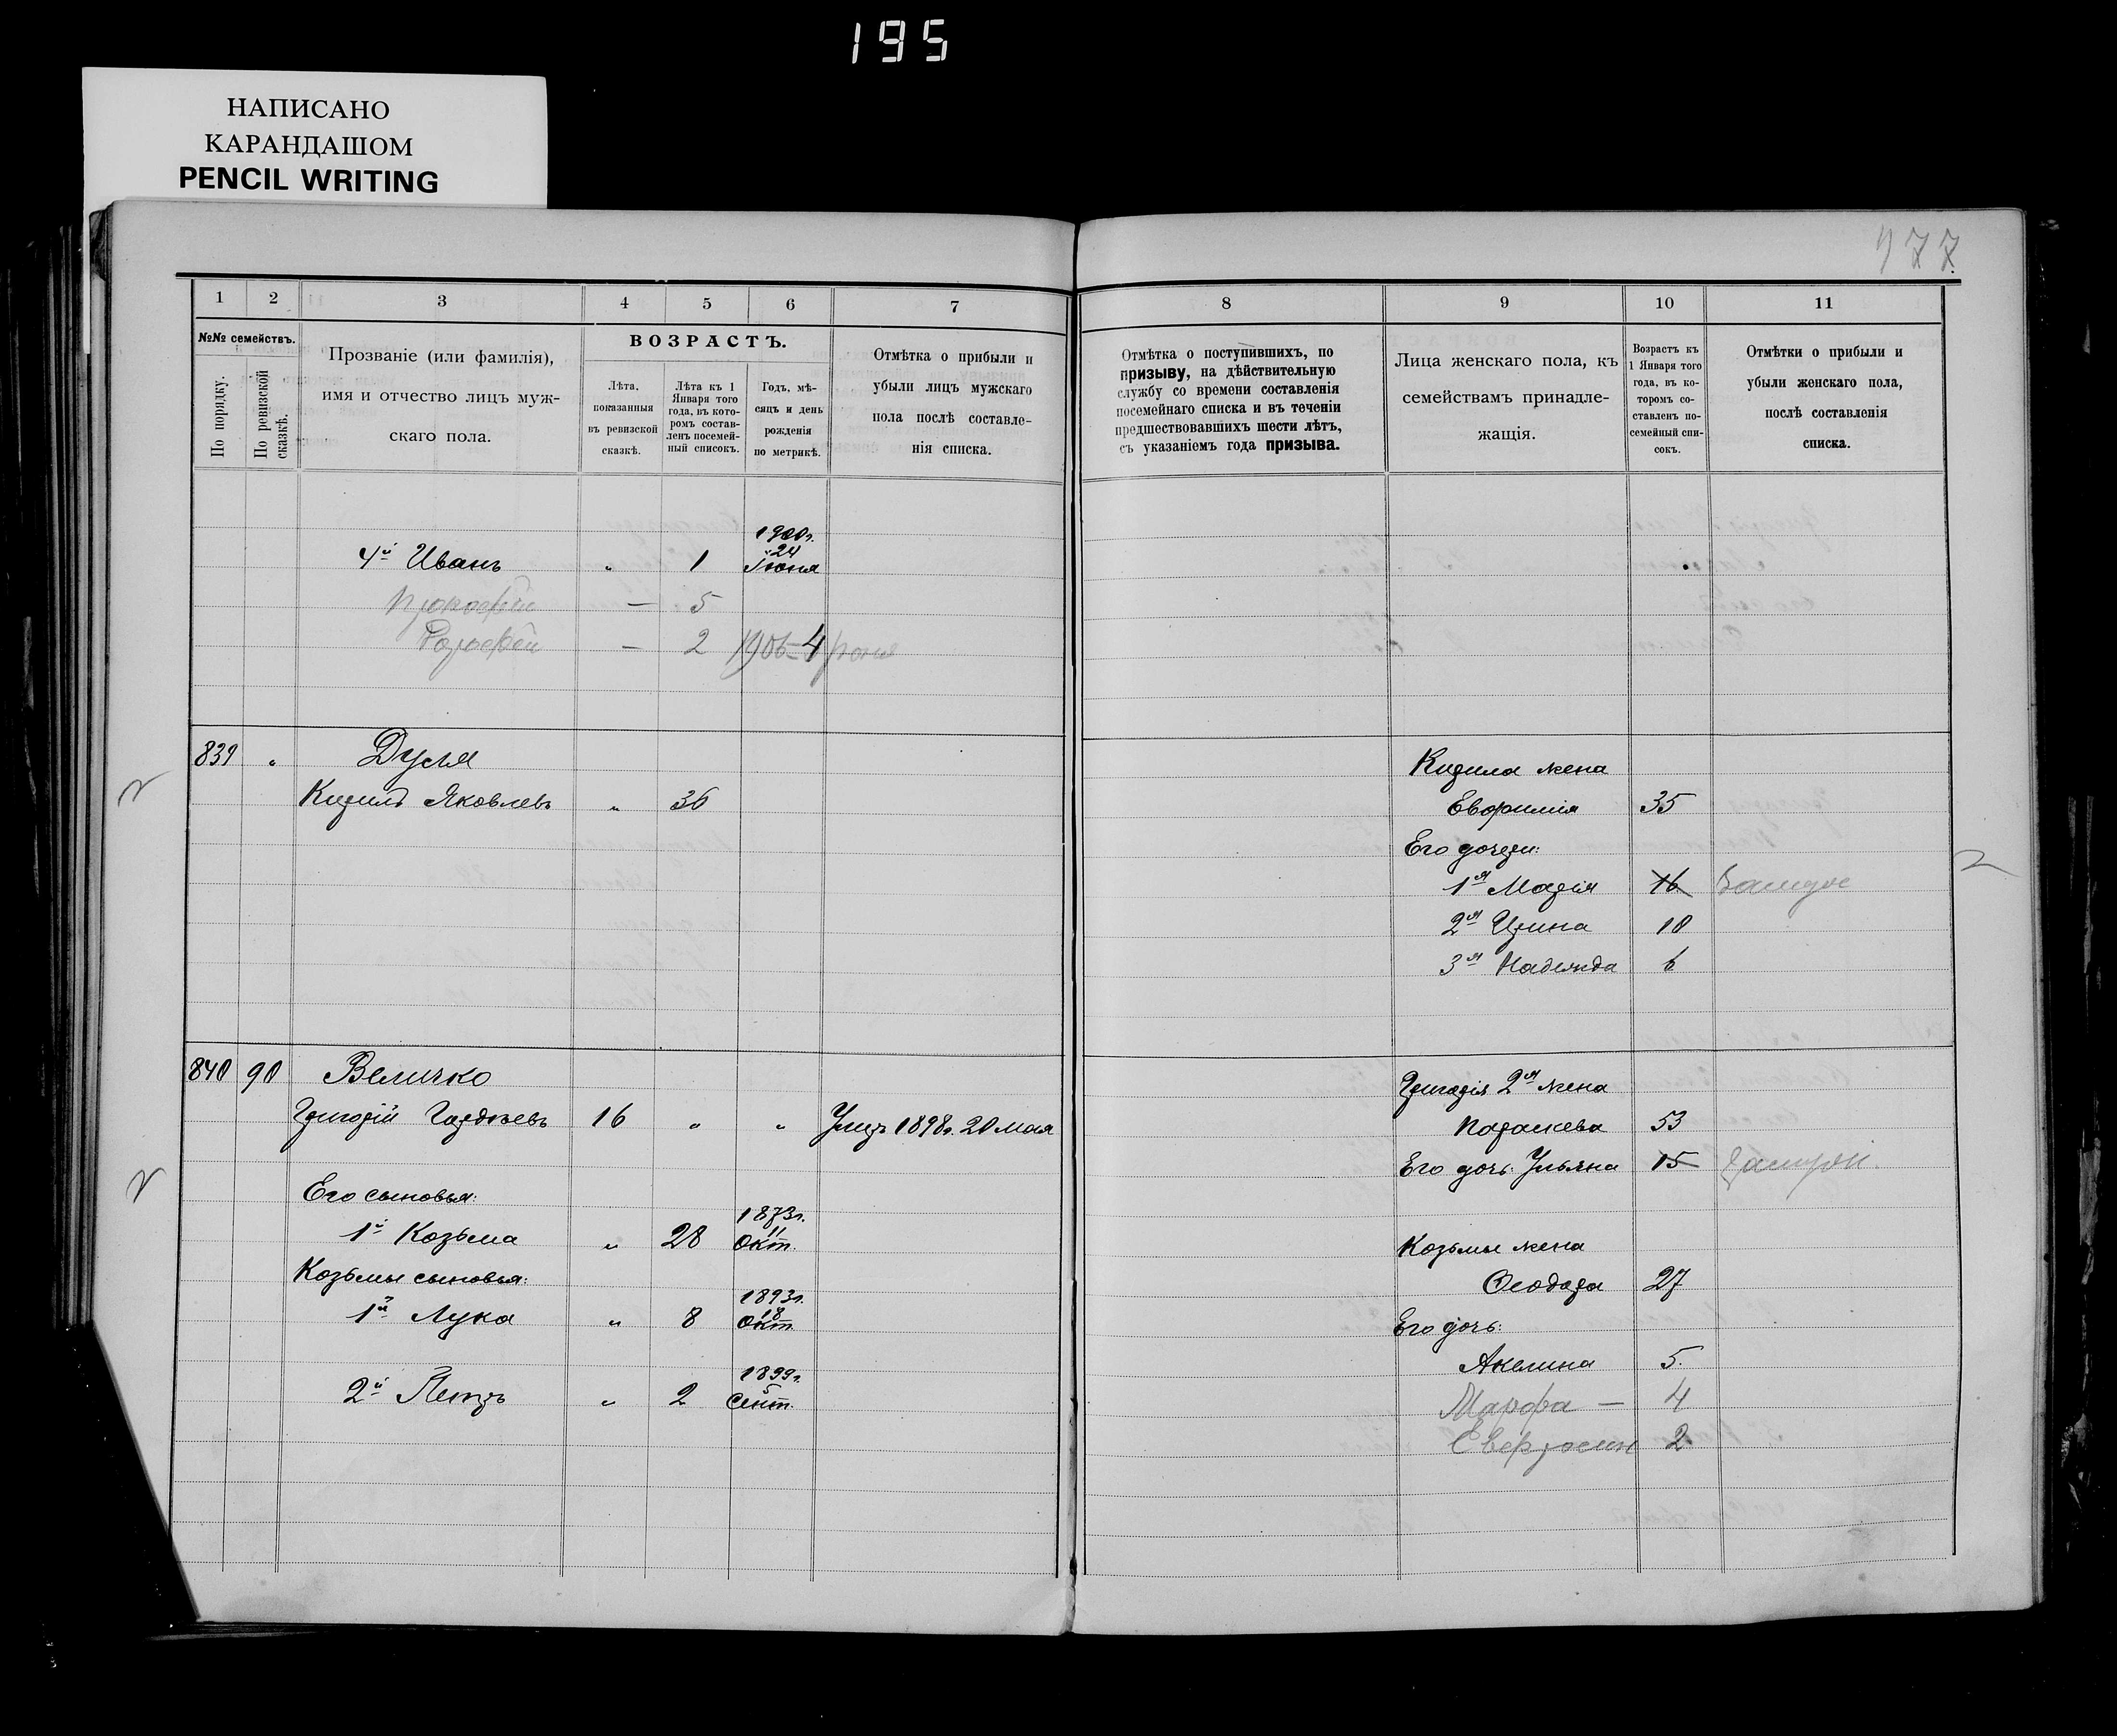 195
НАПИСАНО
КАРАНДАШОМ
PENCIL WRITING
977
1 2 3 4 5 6 7
№№ семействъ.
По порядку.
По ревизской сказкѣ.
Прозваніе (или фамилія),
имя и отчество лицъ муж-
скаго пола.
ВОЗРАСТЪ.
Лѣта,
показанныя
въ ревизской
сказкѣ.
Лѣта къ 1
Января того
года, въ кото-
ромъ состав-
ленъ посемей-
ный списокъ.
Годъ, мѣ-
сяцъ и день
рожденія
по метрикѣ.
Отмѣтка о прибыли и
убыли лицъ мужскаго
пола послѣ составле-
нія списка.
1900г.
4й Иванъ " 1 24 Іюня
Прокофій — 5
— 2 1905-4
839 " Дуля
Кирилъ Яковлевъ " 36
840 90 Величко
Григорій Гордѣевъ 16 " " Умеръ 1898г. 20 мая
Его сыновья:
1й Козьма " 28 1873г. 11 Окт.
Козьмы сыновья:
1й Лука " 8 1893г. 18 Окт.
2й Петръ " 2 1899г. 5 Сент.
8 9 10 11
Отмѣтка о поступившихъ, по
призыву, на дѣйствительную
службу со времени составленія
посемейнаго списка и въ теченіи
предшествовавшихъ шести лѣтъ,
съ указаніемъ года призыва.
Лица женскаго пола, къ
семействамъ принадле-
жащія.
Возрастъ къ
1 Января того
года, въ ко-
торомъ со-
ставленъ по-
семейный спи-
сокъ.
Отмѣтки о прибыли и
убыли женскаго пола,
послѣ составленія
списка.
Кирила жена
Евфимія 35
Его дочери:
1я Марія 16 Замуж
2я Ирина 10
3я Надежда 6
Григорія 2я жена
Параскева 53
Его дочь: Ульяна 15 Замуж
Козьмы жена
Ѳеодора 27
Его дочь:
Акелина 5.
Марфа — 4
Евфросин 2